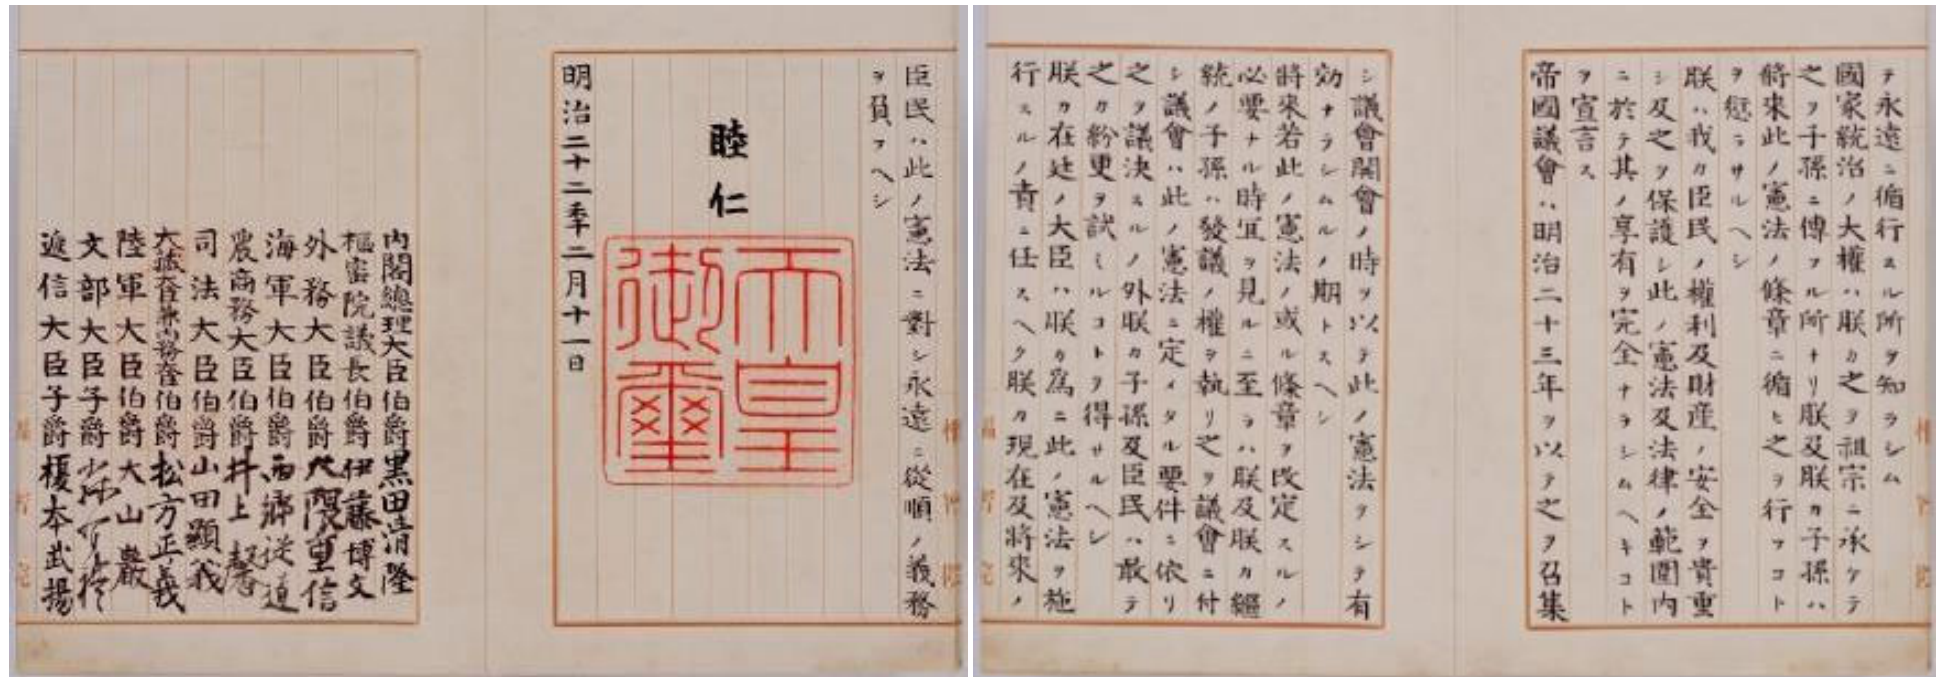 テ永遠ニ循行スル所ヲ知ラシム
國家統治ノ大權ハ朕カ之ヲ祖宗ニ承ケテ
之ヲ子孫ニ傳フル所ナリ朕及朕カ子孫ハ
將來此ノ憲法ノ條章ニ循ヒ之ヲ行フコト
ヲ愆ラサルヘシ
朕ハ我カ臣民ノ權利及財産ノ安全ヲ貴重
シ及之ヲ保護シ此ノ憲法及法律ノ範圍内
ニ於テ其ノ享有ヲ完全ナラシムヘキコト
ヲ宣言ス
帝國議會ハ明治二十三年ヲ以テ之ヲ召集
シ議會開會ノ時ヲ以テ此ノ憲法ヲシテ有
効ナラシムルノ期トスヘシ
將來若此ノ憲法ノ或ル條章ヲ改定スルノ
必要ナル時宜ヲ見ルニ至ラハ朕及朕カ繼
統ノ子孫ハ發議ノ權ヲ執リ之ヲ議會ニ付
シ議會ハ此ノ憲法ニ定メタル要件ニ依リ
之ヲ議決スルノ外朕カ子孫及臣民ハ敢テ
之カ紛更ヲ試ミルコトヲ得サルヘシ
朕カ在廷ノ大臣ハ朕カ爲ニ此ノ憲法ヲ施
行スルノ責ニ任スヘク朕カ現在及將來ノ
臣民ハ此ノ憲法ニ對シ永遠ニ從順ノ義務
ヲ負フヘシ
睦仁
天皇
御璽
明治二十二季二月十一日
内閣總理大臣伯爵黒田清隆
樞密院議長伯爵伊藤博文
外務大臣伯爵大隈重信
海軍大臣伯爵西郷従道
農商務大臣伯爵井上馨
司法大臣伯爵山田顯義
大藏大臣兼内務大臣伯爵松方正義
陸軍大臣伯爵大山巖
文部大臣子爵
遞信大臣子爵榎本武揚